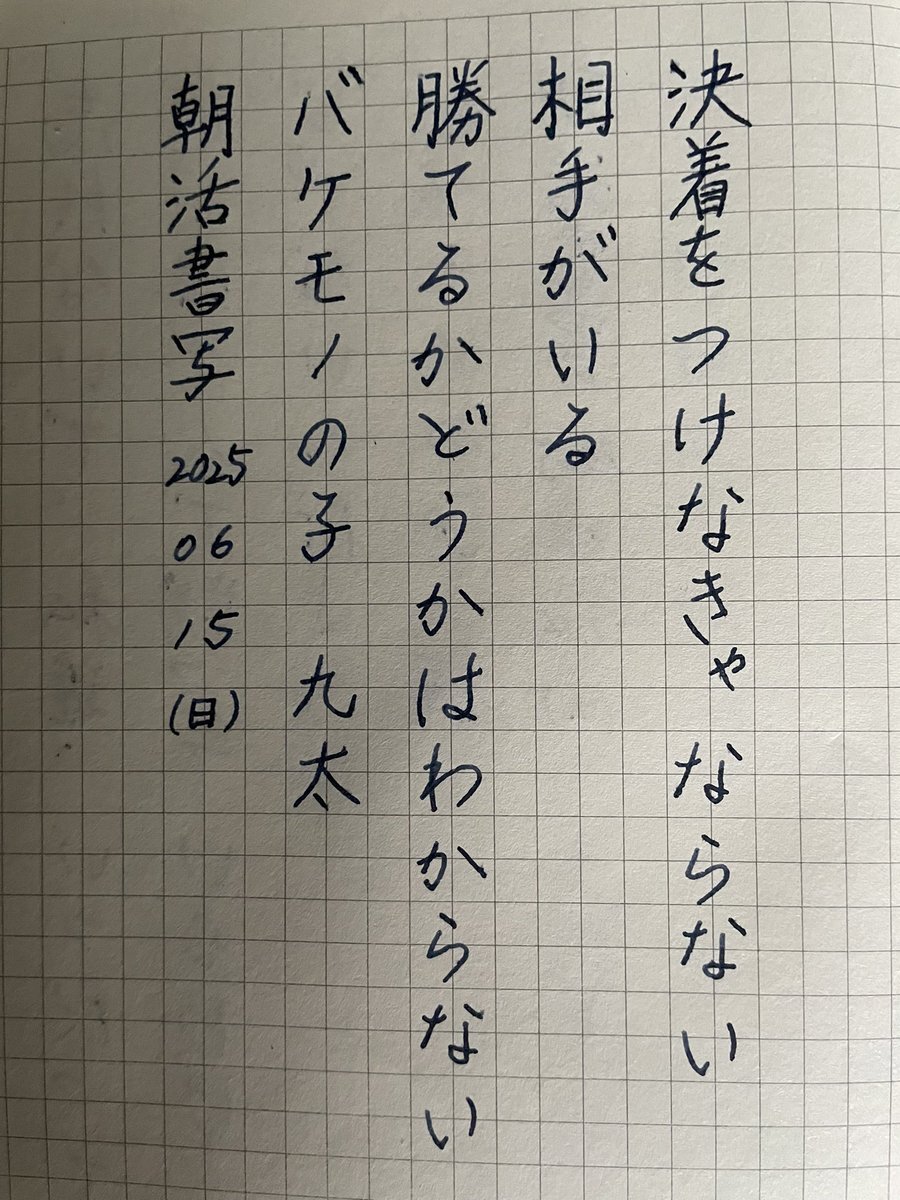 決着をつけなきゃならない
相手がいる
勝てるかどうかはわからない
バケモノの子 九太
朝活書写 2025 06 15 (日)